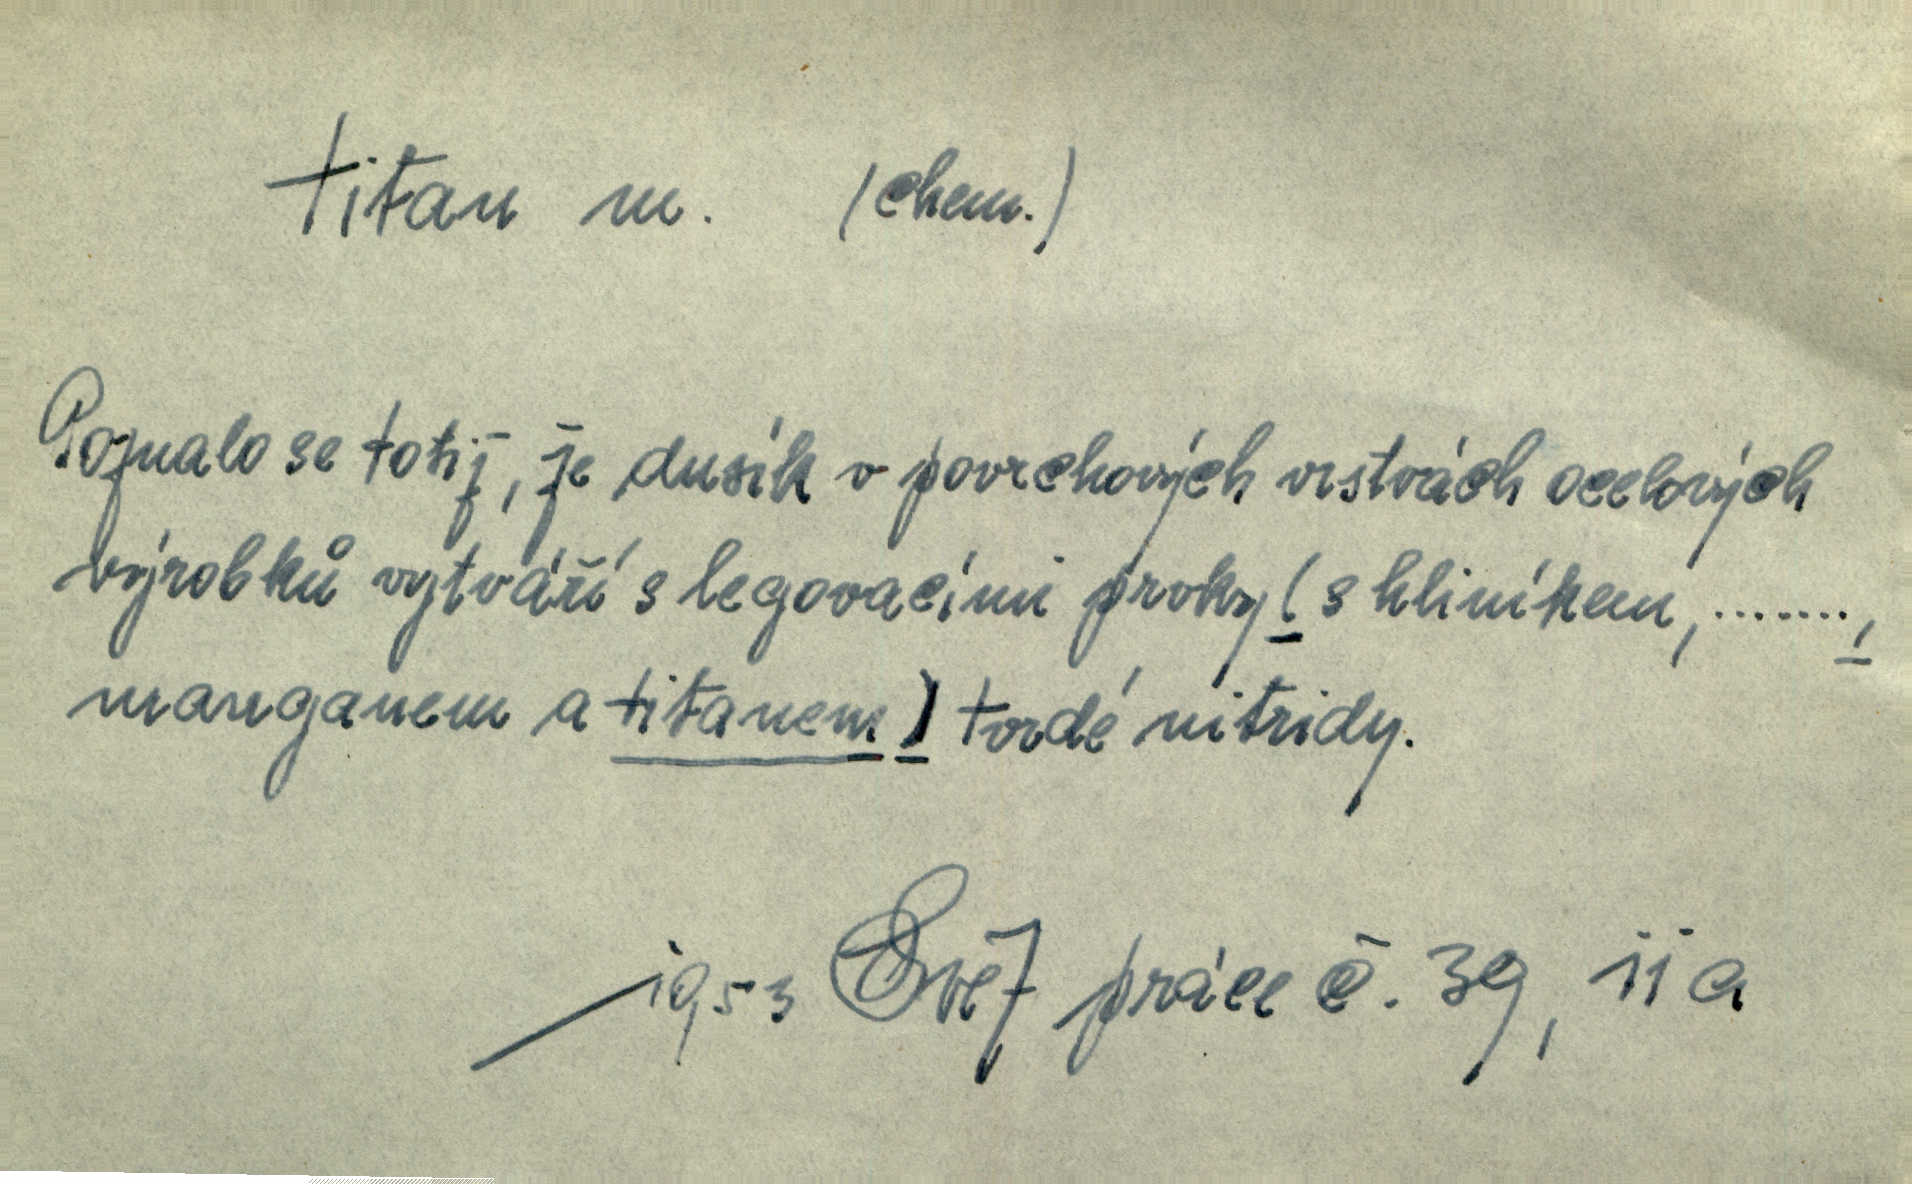 titan m. (chem.)
Poznalo se totiž, že dusík v povrchových vrstvách ocelových
výrobků vytváří s legovacími prvky (s hliníkem, ......., 
manganem a titanem) tvrdé nitridy.
1953 Svět práce č. 39, 11a